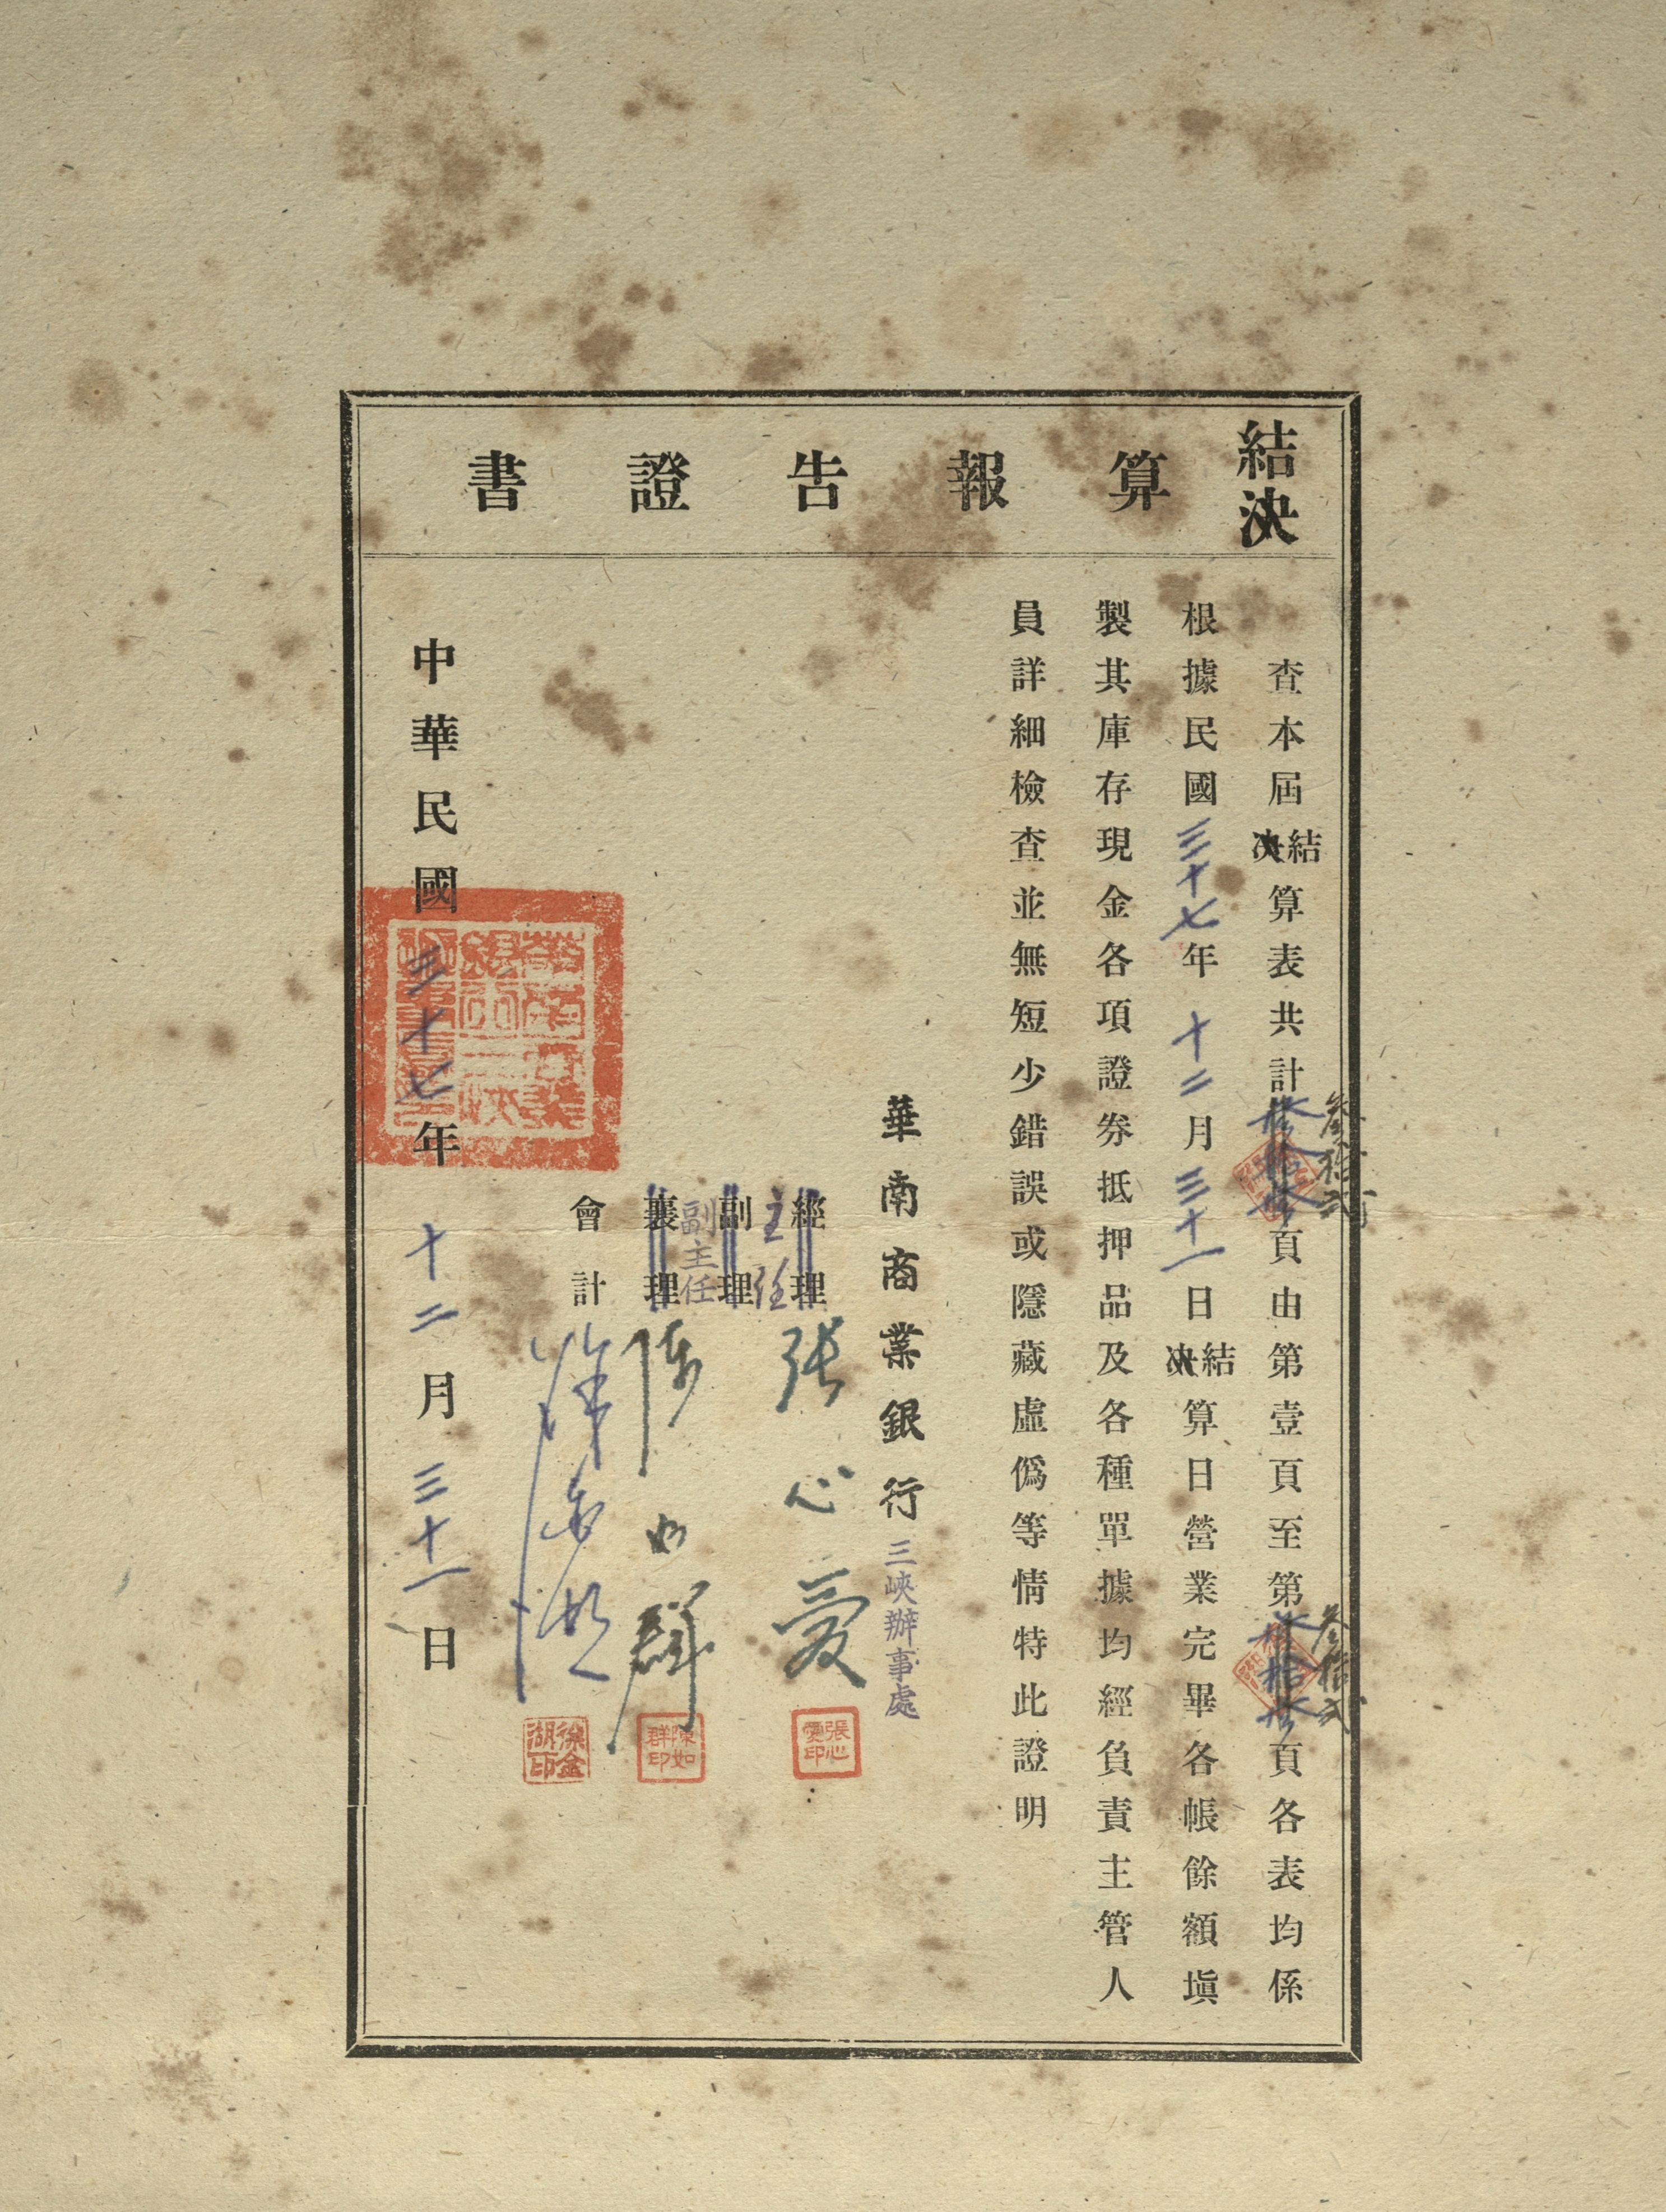 結決算報告證書
查本屆結決算表共計叁拾貳頁由第壹頁至第叁拾貳頁各表均係
根據民國三十七年十二月三十一日結決算日營業完畢各帳餘額填
製其庫存現金各項證券抵押品及各種單據均經負責主管人
員詳細檢查並無短少錯誤或隱藏虛僞等情特此證明
華南商業銀行三峽辦事處
經理 主任 張心愛
張心愛印
副理
襄理 副主任 陳如群
陳如群印
會計 徐金湖
徐金湖印
中華民國三十七年十二月三十一日